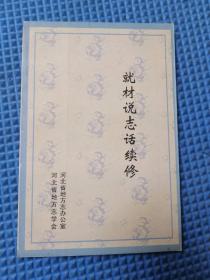 就材说志话续修
河北省地方志办公室
河北省地方志学会